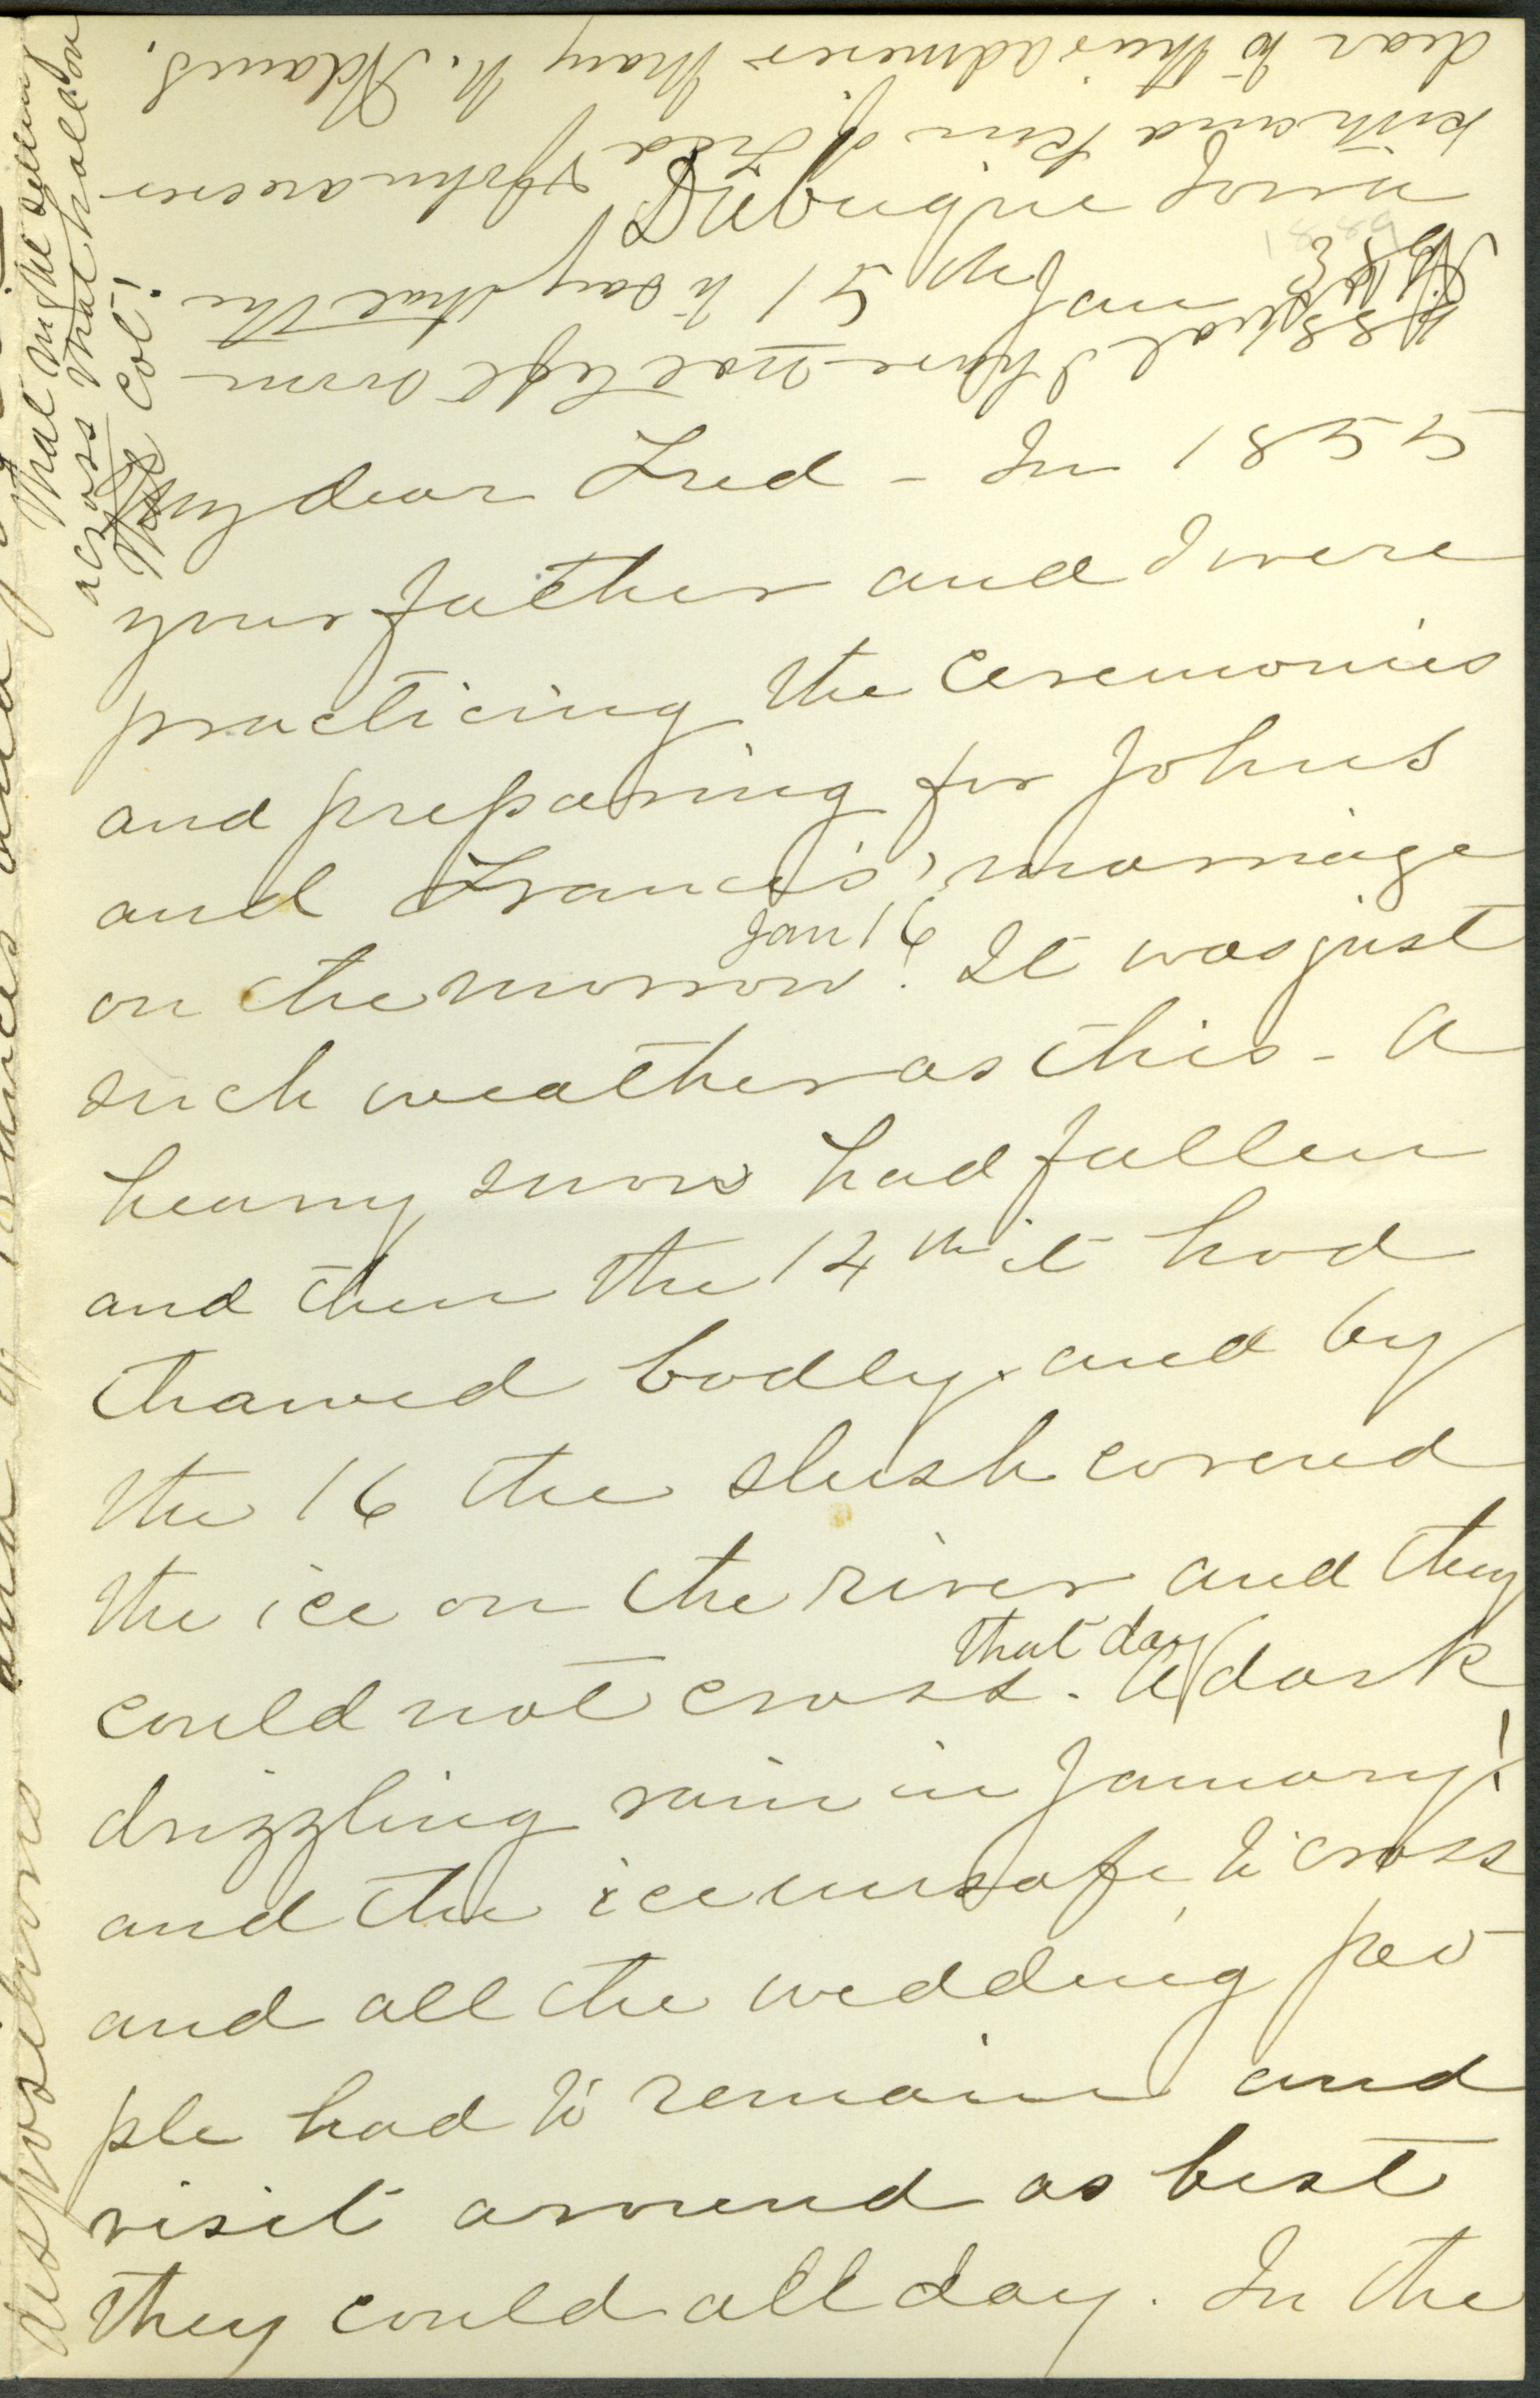 Dubuque Iowa
Jan 15
My dear Fred - In 1855
your father and I were
practicing the ceremonies
and preparing for Johns
and Francis' marriage
on the morrow Jan 16. It was just
such weather as this - a
heavy snow had fallen
and then the 14th it had
thawed badly. and by
the 16 the slush covered
the ice on the river and they
could not cross that day. A dark
drizzling rain in January!
and the ice unsafe to cross
and all the wedding peo
ple had to remain and
visit around as best
they could all day. In the
that I have not left room
to say that the
kith and kin of Fred & John are ever
dear to this admirer Mary N. Adams.
across that hall or
The Col!
dispositions